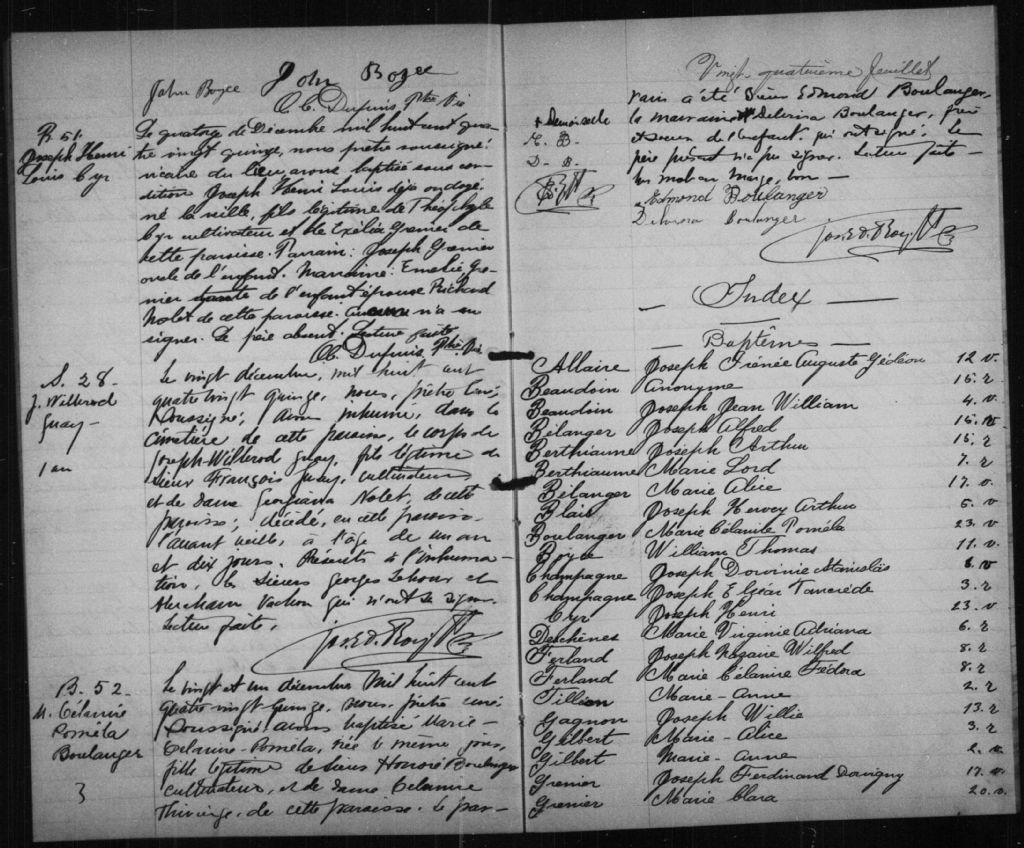 John Boyce
John Boyce
O. C. Dupuis, Ptre Vic
B. 51.
Joseph Henri
Louis Cyr
Le quatorze de Décembre mil huit cent qua-
tre vingt quinze, nous prêtre soussigné
vicaire du lieu avons baptisé sous con-
dition Joseph Henri Louis déjà ondoyé
né la veille, fils légitime de Théophile
Cyr cultivateur et de Exélia Grenier de
cette paroisse. Parrain: Joseph Grenier
oncle de l'enfant. Marraine: Emelie Gre-
nier tante de l'enfant épouse Richard
Nolet de cette paroisse. n'a su
signer. Le père absent. Lecture faite
O. C. Dupuis, Ptre. Vic
S. 28.
J. Wilbrod
Guay -
1 an
Le vingt décembre, mil huit cent
quatre vingt quinze, nous, prêtre curé
soussigné, avons inhumé, dans le
cimetière de cette paroisse, le corps de
Joseph-Wilbrod Guay, fils légitime de
Sieur François Guay, cultivateur
et de Dame Georgiana Nolet, de cette
paroisse; décédé, en cette paroisse
l'avant veille, à l'âge de un an
et dix jours. Présents à l'inhuma-
tion, les Sieurs Georges Lehoux et
Abraham Vachon qui n'ont su signer.
Lecture faite.
Jos. E. D. Roy Ptre
B. 52
M. Célanire
Poméla
Boulanger
3
Le vingt et un décembre mil huit cent
quatre vingt quinze, nous, prêtre curé
soussigné avons baptisé Marie-
Célanire-Poméla, née le même jour,
fille légitime de Sieur Honoré Boulanger
cultivateur, et de Dame Célanire
Thivierge, de cette paroisse. Le par-
Vingt quatrième feuillet
rain a été Sieur Edmond Boulanger
la marraine Delerina Boulanger, frère
et soeur de l'enfant, qui ont signé. Le
père présent n'a pu signer. Lecture faite -
Un mot en marge, bon -
+ Demoiselle
E. B.
D. B.
Edmond Boulanger
Delerina Boulanger
Jos. E. D. Roy Ptre
- Index -
- Baptêmes -
Allaire Joseph Irénée Auguste Gédéon 12 v.
Beaudoin Anonyme 16. r
Beaudoin Joseph Jean William 4. v
Bélanger Joseph Alfred 15. v
Berthiaume Joseph Arthur 15. r
Berthiaume Marie Lord 7. r
Bélanger Marie Alice 17. v.
Blais Joseph Hervey Arthur 5. v
Boulanger Marie Célanile Poméla 23. v
Boyce William Thomas 11. v.
Champagne Joseph Dovinie Stanislas 8. v
Champagne Joseph Elzéar Tancrède 3. r
Cyr Joseph Henri 23. v
Deschênes Marie Virginie Adriana 6. r
Ferland Joseph Nazaire Wilfred 8. r
Ferland Marie Célanire Fédora 8. r
Fillion Marie-Anne 2. r
Gagnon Joseph Willie 13. r
Gilbert Marie-Alice 3. r
Gilbert Marie-Anne 2. v.
Grenier Joseph Ferdinand Dovigny 17. v.
Grenier Marie Clara 20. v.